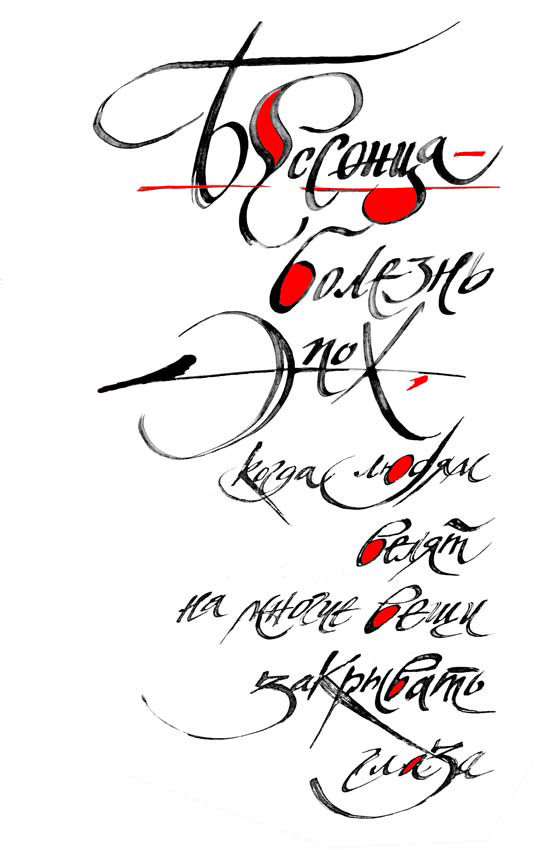 Бессонца –
болезнь
Эпох,
когда людям
велят
на многие вещи
закрывать
глаза